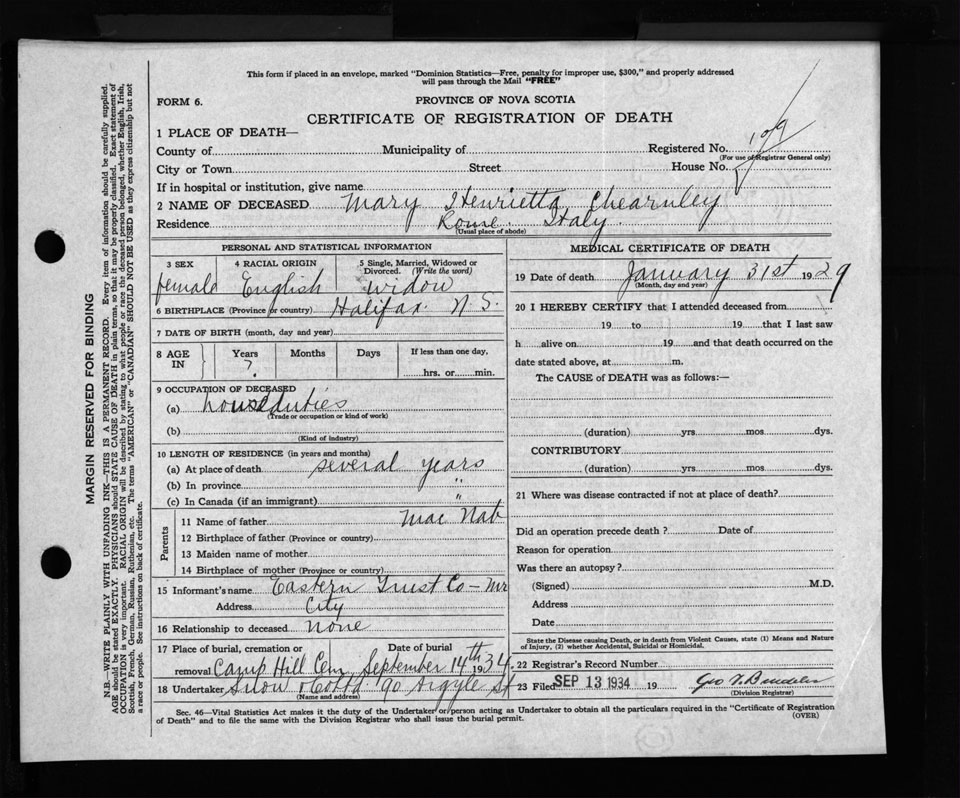 This form if placed in an envelope, marked "Dominion Statistics—Free, penalty for improper use, $300," and properly addressed
will pass through the Mail "FREE"
FORM 6.
PROVINCE OF NOVA SCOTIA
CERTIFICATE OF REGISTRATION OF DEATH
1 PLACE OF DEATH—
County of Municipality of Registered No. 109
(For use of Registrar General only)
City or Town Street House No.
If in hospital or institution, give name
2 NAME OF DECEASED Mary Henrietta Chearnley
Residence Rome Italy
(Usual place of abode)
PERSONAL AND STATISTICAL INFORMATION
3 SEX 4 RACIAL ORIGIN 5 Single, Married, Widowed or
Divorced. (Write the word)
female English widow
6 BIRTHPLACE (Province or country) Halifax. N S.
7 DATE OF BIRTH (month, day and year)
8 AGE IN Years Months Days If less than one day,
?
hrs. or min.
9 OCCUPATION OF DECEASED
(a) house duties
(Trade or occupation or kind of work)
(b)
(Kind of industry)
10 LENGTH OF RESIDENCE (in years and months)
(a) At place of death several years
(b) In province "
(c) In Canada (if an immigrant) "
Parents
11 Name of father Mac Nab
12 Birthplace of father (Province or country)
13 Maiden name of mother
14 Birthplace of mother (Province or country)
15 Informant's name Eastern Trust Co – Mr
Address City
16 Relationship to deceased none
17 Place of burial, cremation or Date of burial
removal Camp Hill Cem. September 14th 1934.
18 Undertaker Snow & Co Ltd 90 Argyle St
(Name and address)
MEDICAL CERTIFICATE OF DEATH
19 Date of death January 31st 1929
(Month, day and year)
20 I HEREBY CERTIFY that I attended deceased from
19 to 19 that I last saw
h alive on 19 and that death occurred on the
date stated above, at m.
The CAUSE of DEATH was as follows:—
(duration) yrs. mos. dys.
CONTRIBUTORY
(duration) yrs. mos. dys.
21 Where was disease contracted if not at place of death?
Did an operation precede death? Date of
Reason for operation
Was there an autopsy?
(Signed) M.D.
Address
Date
State the Disease causing Death, or in death from Violent Causes, state (1) Means and Nature
of Injury, (2) whether Accidental, Suicidal or Homicidal.
22 Registrar's Record Number
23 Filed SEP 13 1934 19 Geo
(Division Registrar)
Sec. 46—Vital Statistics Act makes it the duty of the Undertaker or person acting as Undertaker to obtain all the particulars required in the "Certificate of Registration
of Death" and to file the same with the Division Registrar who shall issue the burial permit.
(OVER)
MARGIN RESERVED FOR BINDING
N.B.—WRITE PLAINLY WITH UNFADING INK—THIS IS A PERMANENT RECORD. Every item of information should be carefully supplied.
AGE should be stated EXACTLY. PHYSICIANS should STATE CAUSE OF DEATH in plain terms, so that it may be properly classified. Exact statement of
OCCUPATION is very important. RACIAL ORIGIN will be described by stating to what people or race the deceased person belonged, whether English, Irish,
Scottish, French, German, Russian, Ruthenian, etc. The terms "AMERICAN" or "CANADIAN" SHOULD NOT BE USED as they express citizenship but not
a race or people. See instructions on back of certificate.